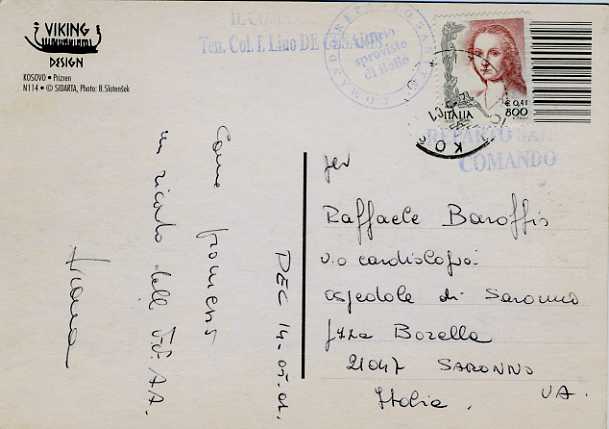 VIKING
DESIGN
KOSOVO • Prizren
N114 • © SIDARTA, Photo: B. Slotenšek
Ten. Col. f. Lino DE
ITALIA
€ 0,41
800
COMANDO
PEC 14-05-01
Come promesso
un ricordo delle FF.AA.
per
Raffaele Baroffio
c/o cardiologia
ospedale di Saronno
p.zza Borella
21047 SARONNO
VA.
Italia.